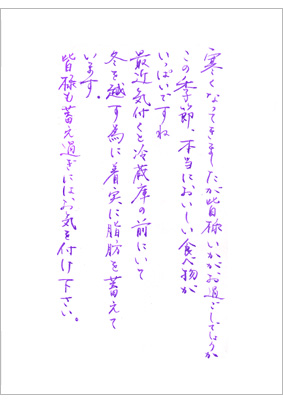 寒くなってきましたが皆様いかがお過ごしでしょうか
この季節、本当においしい食べ物が
いっぱいですね
最近気付くと冷蔵庫の前にいて
冬を越す為に着実に脂肪を蓄えて
います。
皆様も蓄え過ぎにはお気を付け下さい。